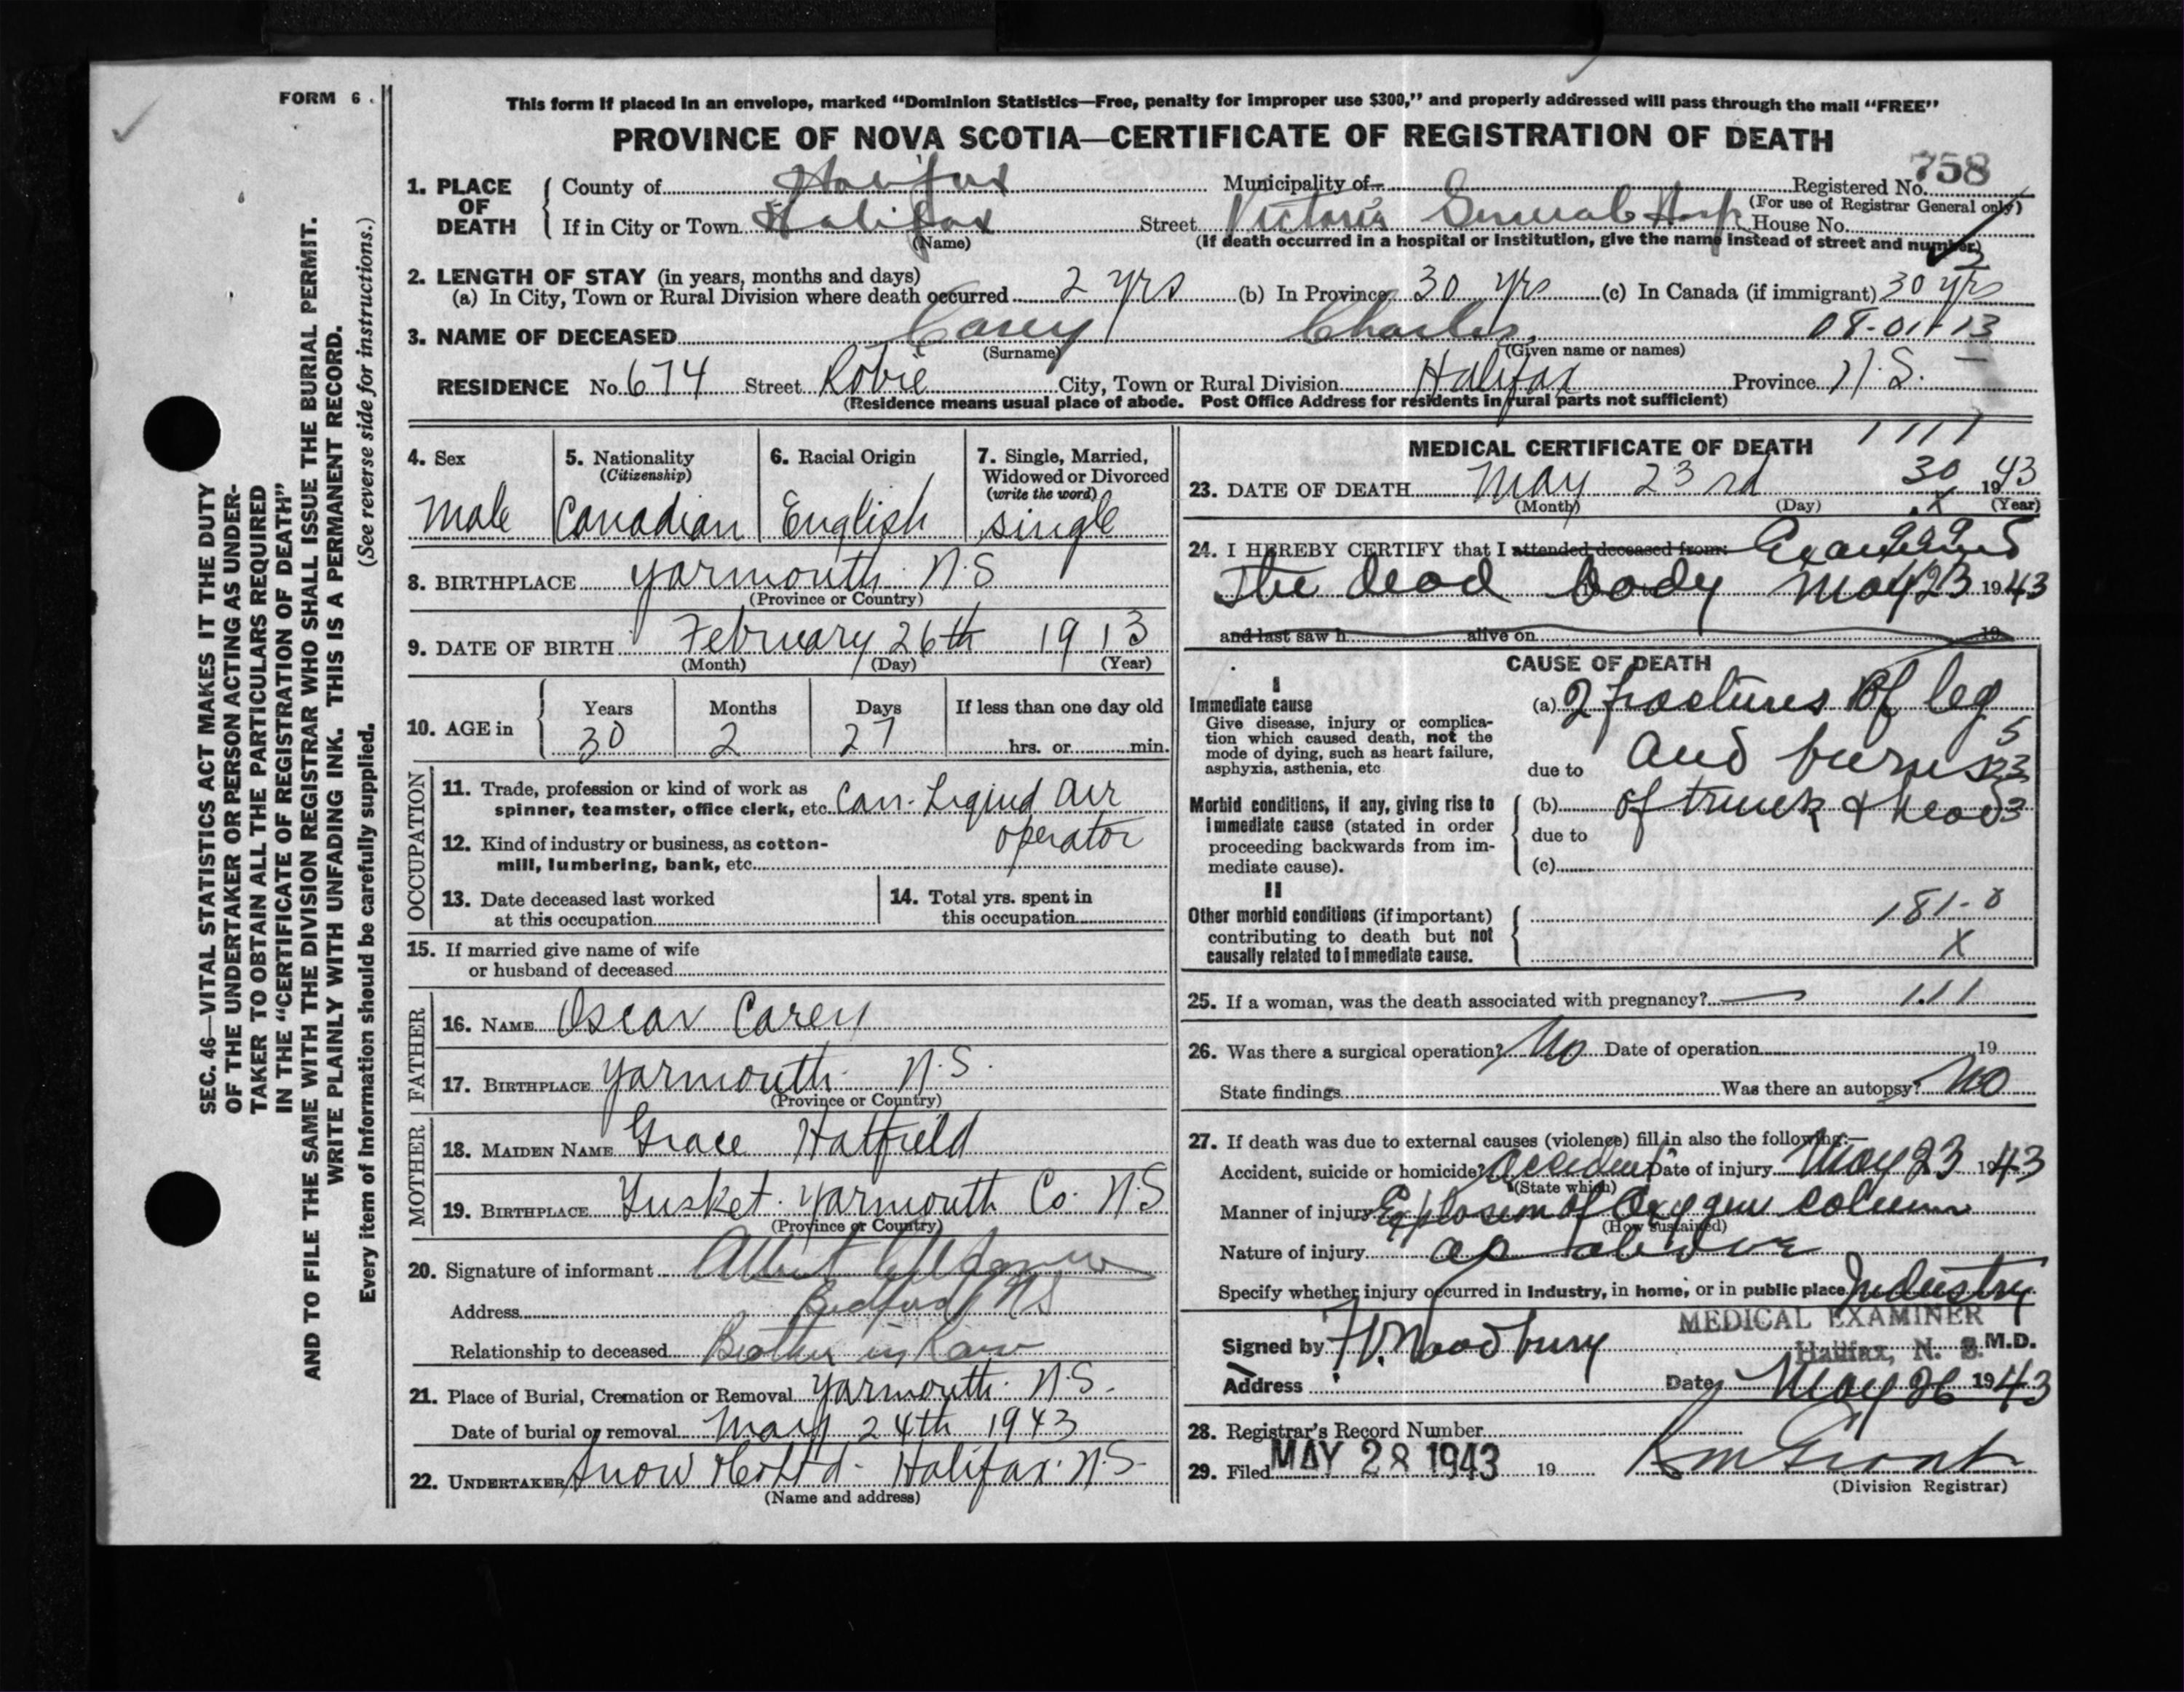 FORM 6.
This form if placed in an envelope, marked "Dominion Statistics—Free, penalty for improper use $300," and properly addressed will pass through the mail "FREE"
PROVINCE OF NOVA SCOTIA—CERTIFICATE OF REGISTRATION OF DEATH
758
1. PLACE OF DEATH
County of Halifax Municipality of Registered No.
(For use of Registrar General only)
If in City or Town Halifax Street Victoria General Hosp House No.
(Name) (If death occurred in a hospital or institution, give the name instead of street and number)
2. LENGTH OF STAY (in years, months and days)
(a) In City, Town or Rural Division where death occurred 2 yrs (b) In Province 30 yrs (c) In Canada (if immigrant) 30 yrs
3. NAME OF DECEASED Carey Charles 08-01-13
(Surname) (Given name or names)
RESIDENCE No. 674 Street Robie City, Town or Rural Division Halifax Province N.S.
(Residence means usual place of abode. Post Office Address for residents in rural parts not sufficient)
4. Sex
Male
5. Nationality
(Citizenship)
Canadian
6. Racial Origin
English
7. Single, Married,
Widowed or Divorced
(write the word)
single
8. BIRTHPLACE Yarmouth N.S
(Province or Country)
9. DATE OF BIRTH February 26th 1913
(Month) (Day) (Year)
10. AGE in
Years Months Days If less than one day old
30 2 27 hrs. or min.
OCCUPATION
11. Trade, profession or kind of work as
spinner, teamster, office clerk, etc. Can. Liquid Air
operator
12. Kind of industry or business, as cotton-
mill, lumbering, bank, etc.
13. Date deceased last worked
at this occupation
14. Total yrs. spent in
this occupation
15. If married give name of wife
or husband of deceased
FATHER
16. NAME Oscar Carey
17. BIRTHPLACE Yarmouth N.S.
(Province or Country)
MOTHER
18. MAIDEN NAME Grace Hatfield
19. BIRTHPLACE Tusket Yarmouth Co. N.S
(Province or Country)
20. Signature of informant Albert
Address Bedford N S
Relationship to deceased Brother in Law
21. Place of Burial, Cremation or Removal Yarmouth N.S.
Date of burial or removal May 24th 1943
22. UNDERTAKER Snow & Co Ltd. Halifax. N.S.
(Name and address)
MEDICAL CERTIFICATE OF DEATH
1111
23. DATE OF DEATH May 23rd 30 1943
(Month) (Day) X (Year)
999
24. I HEREBY CERTIFY that I attended deceased from: Examined
The dead body May 23 1943
and last saw h alive on 19
CAUSE OF DEATH
I
Immediate cause
Give disease, injury or complica-
tion which caused death, not the
mode of dying, such as heart failure,
asphyxia, asthenia, etc
(a) 2 fractures of leg
5
due to and burns 23
Morbid conditions, if any, giving rise to
immediate cause (stated in order
proceeding backwards from im-
mediate cause).
(b) of trunk & head 3
due to
(c)
II
Other morbid conditions (if important)
contributing to death but not
causally related to immediate cause.
181-0
X
25. If a woman, was the death associated with pregnancy? — 1.11
26. Was there a surgical operation? No Date of operation 19
State findings Was there an autopsy? No
27. If death was due to external causes (violence) fill in also the following:—
Accident, suicide or homicide? Accident Date of injury May 23 1943
(State which)
Manner of injury Explosion of Oxygen column
(How sustained)
Nature of injury as above
Specify whether injury occurred in industry, in home, or in public place Industry
MEDICAL EXAMINER
Signed by H.V. Woodbury Halifax, N. S. M.D.
Address Date May 26 1943
28. Registrar's Record Number
29. Filed MAY 28 1943 19 Grant
(Division Registrar)
SEC. 46—VITAL STATISTICS ACT MAKES IT THE DUTY
OF THE UNDERTAKER OR PERSON ACTING AS UNDER-
TAKER TO OBTAIN ALL THE PARTICULARS REQUIRED
IN THE "CERTIFICATE OF REGISTRATION OF DEATH"
AND TO FILE THE SAME WITH THE DIVISION REGISTRAR WHO SHALL ISSUE THE BURIAL PERMIT.
WRITE PLAINLY WITH UNFADING INK. THIS IS A PERMANENT RECORD.
Every item of information should be carefully supplied. (See reverse side for instructions.)